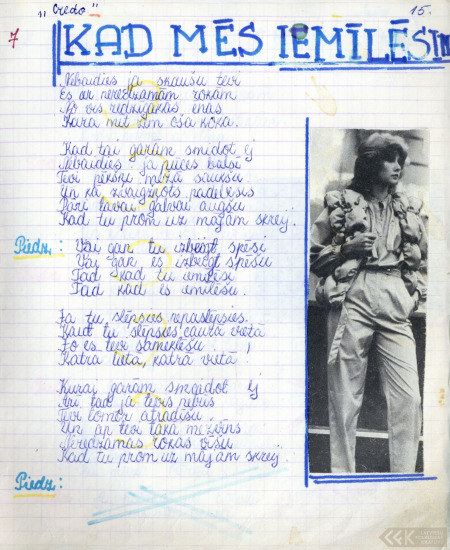 "Credo"
15.
7
KAD MĒS IEMĪLĒSIM
Nebaidies ja skaušu tevi
Es ar neredzamām rokām
No vis redzīgākās ēnas
Kura mīt zim oša koka.
Kad tai garām smidot ej
Nebaidies ja pūces balsī
Tevi pēkšņi mežā saukšu
Un kā zvaigznots padebesis
Pāri tavai galvai augšu
Kad tu prom uz mājām skrej.
Piedz.: Vai gan tu izbēgt spēsi
Vai gan es izbēgt spēšu
Tad kad tu iemīlēsi
Tad kad es iemīlēšu.
Ja tu slēpsies nepaslēpsies.
Kaut tu slēpsies caurā vietā
To es tevi sameklēšu
Katrā lietā, katrā vietā!
Kurai garām smejdot ej
Arī tad ja tevis nebūs
Tevi tomēr atradīšu
Un ap tevi tākā mežvīns
Neredzamas rokas vīšu
Kad tu prom uz mājām skrej.
Piedz.: